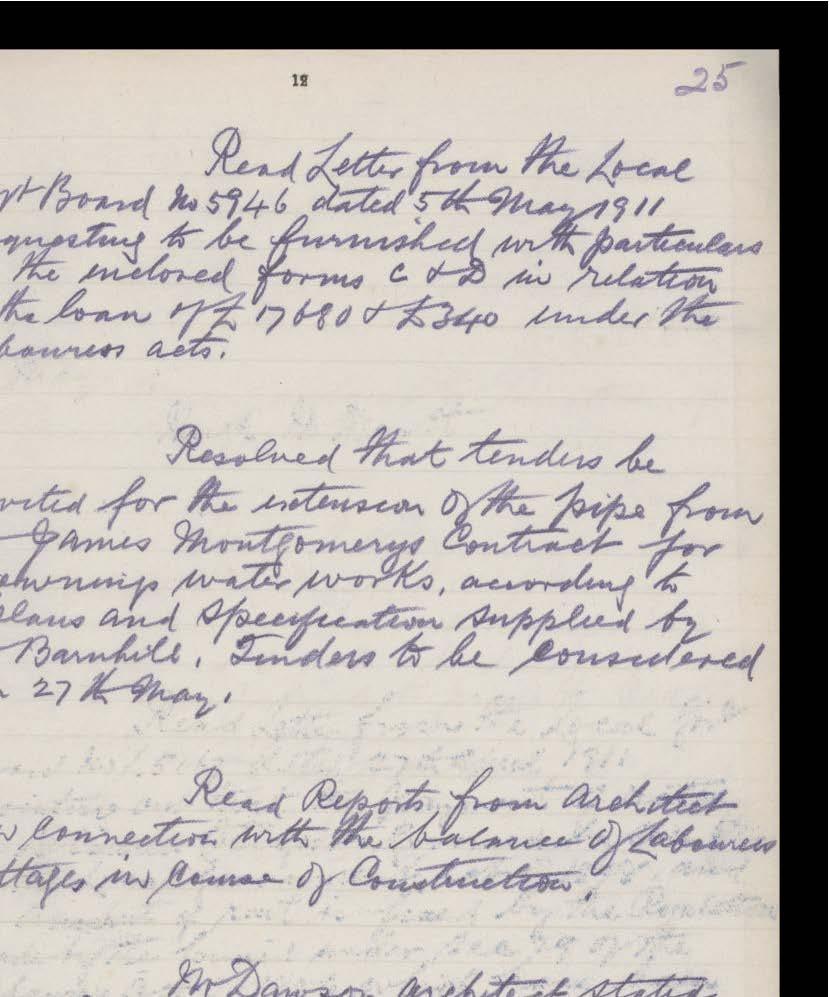 12
25
Read Letter from the Local
Board No 5946 dated 5th May 1911
questing to be furnished with particulars
the inclosed forms C & D in relation
the loan of £17680 & £340 under the
bourers acts.
Resolved that tenders be
vited for the extension of the pipe from
James Montgomerys Contract for
wnings water works, according to
plans and specification supplied by
Barnhill. Tenders to be considered
27th May.
Read Reports from Architect
connection with the balance of Labourers
ttages in Course of Construction.
Mr Dawson Architect stated